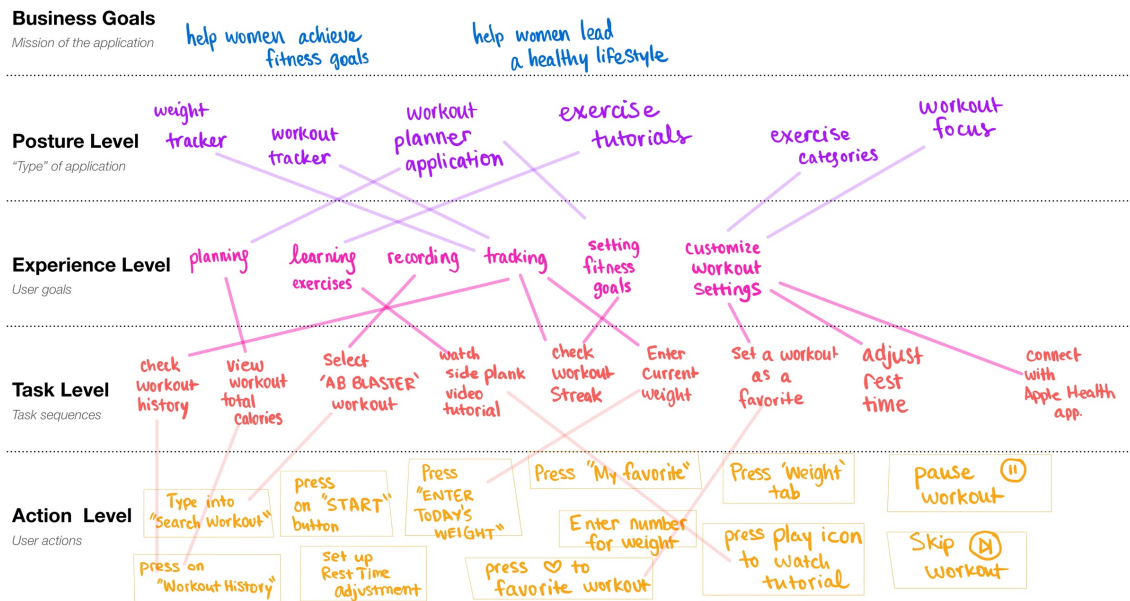 Business Goals
Mission of the application
help women achieve
fitness goals
help women lead
a healthy lifestyle
Posture Level
"Type" of application
weight
tracker
workout
tracker
workout
planner
application
exercise
tutorials
exercise
categories
workout
focus
Experience Level
User goals
planning
learning
exercises
recording
tracking
setting
fitness
goals
customize
workout
settings
Task Level
Task sequences
check
workout
history
view
workout
total
calories
Select
'AB BLASTER'
workout
watch
side plank
video
tutorial
check
workout
Streak
Enter
current
weight
Set a workout
as a
favorite
adjust
rest
time
connect
with
Apple Health
app.
Action Level
User actions
Type into
"Search Workout"
press
on "START"
button
Press
"ENTER
TODAY'S
WEIGHT"
Press "My favorite"
Press 'Weight'
tab
pause
workout
press on
"Workout History"
Set up
Rest Time
adjustment
Enter number
for weight
press ♡ to
favorite workout
press play icon
to watch
tutorial
Skip
workout